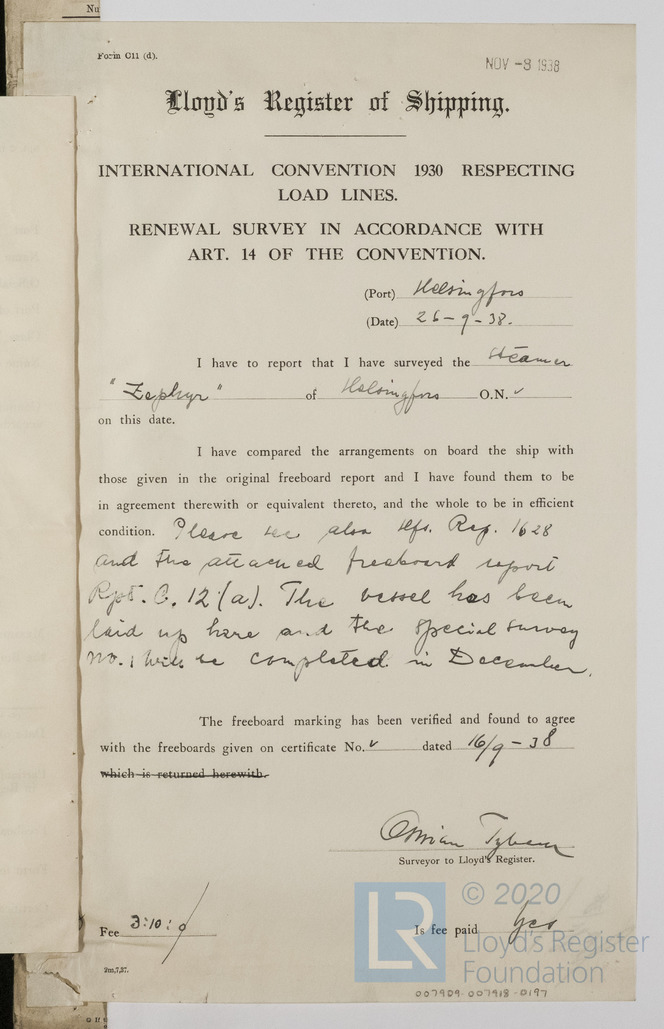 Nu
Form C11 (d).
NOV -8 1938
Lloyd's Register of Shipping.
INTERNATIONAL CONVENTION 1930 RESPECTING
LOAD LINES.
RENEWAL SURVEY IN ACCORDANCE WITH
ART. 14 OF THE CONVENTION.
(Port) Helsingfors
(Date) 26-9-38.
I have to report that I have surveyed the steamer
"Zephyr" of Helsingfors O.N.
on this date.
I have compared the arrangements on board the ship with
those given in the original freeboard report and I have found them to be
in agreement therewith or equivalent thereto, and the whole to be in efficient
condition. Please see also Hfs. Rep. 1628
and the attached freeboard report
Rpt. C. 12 (a). The vessel has been
laid up here and the special survey
No. 1 will be completed in December.
The freeboard marking has been verified and found to agree
with the freeboards given on certificate No. dated 16/9-38
which is returned herewith.
Surveyor to Lloyd's Register.
Fee 3:10:0
Is fee paid Yes
2m,7,37.
© 2020
LR
Lloyd's Register
Foundation
007909-007918-0197